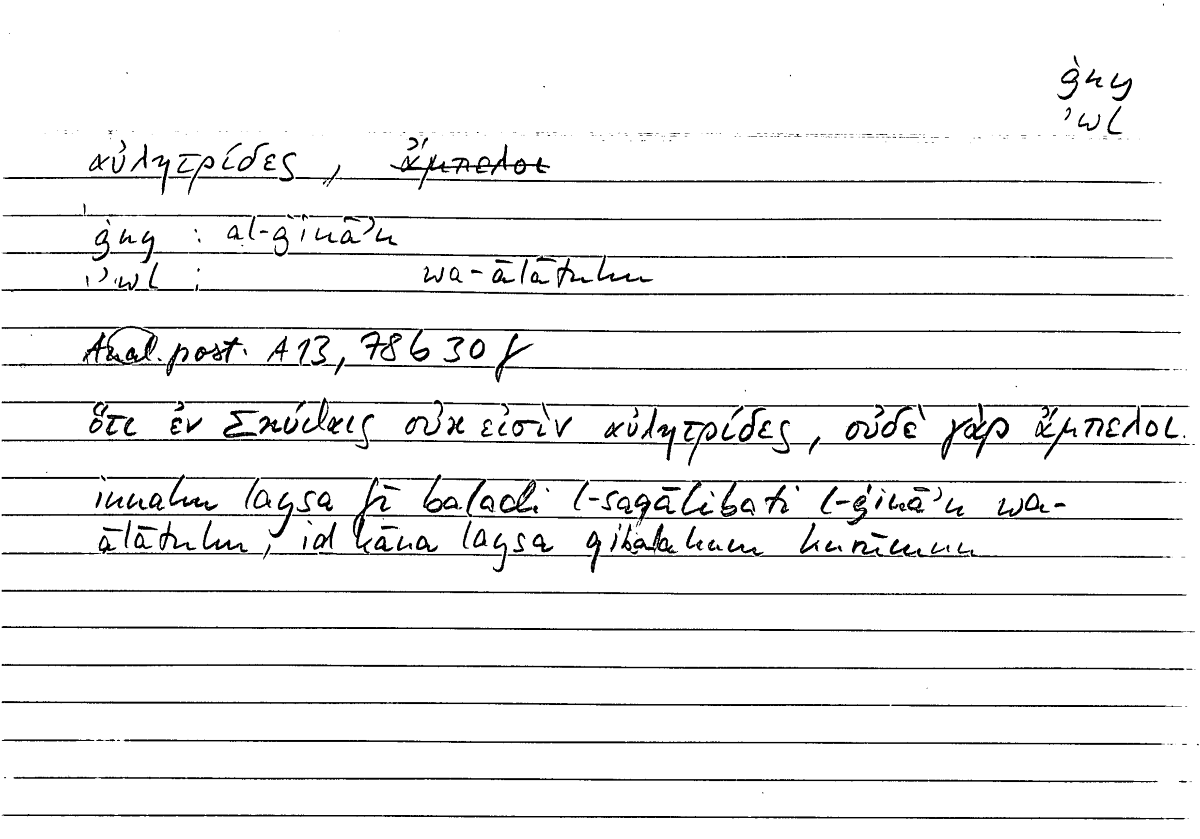 ġny
ʾwl
αὐλητρίδες, ἄμπελοι
ġny : al-ġināʾu
ʾwl : wa-ālātuhu
Anal. post. A 13, 78 b 30 f
ὅτι ἐν Σκύθαις οὐκ εἰσὶν αὐλητρίδες, οὐδὲ γὰρ ἄμπελοι.
innahu laysa fī baladi l-saqālibati l-ġināʾu wa-
ālātuhu, id kāna laysa qibalahum kurūmun